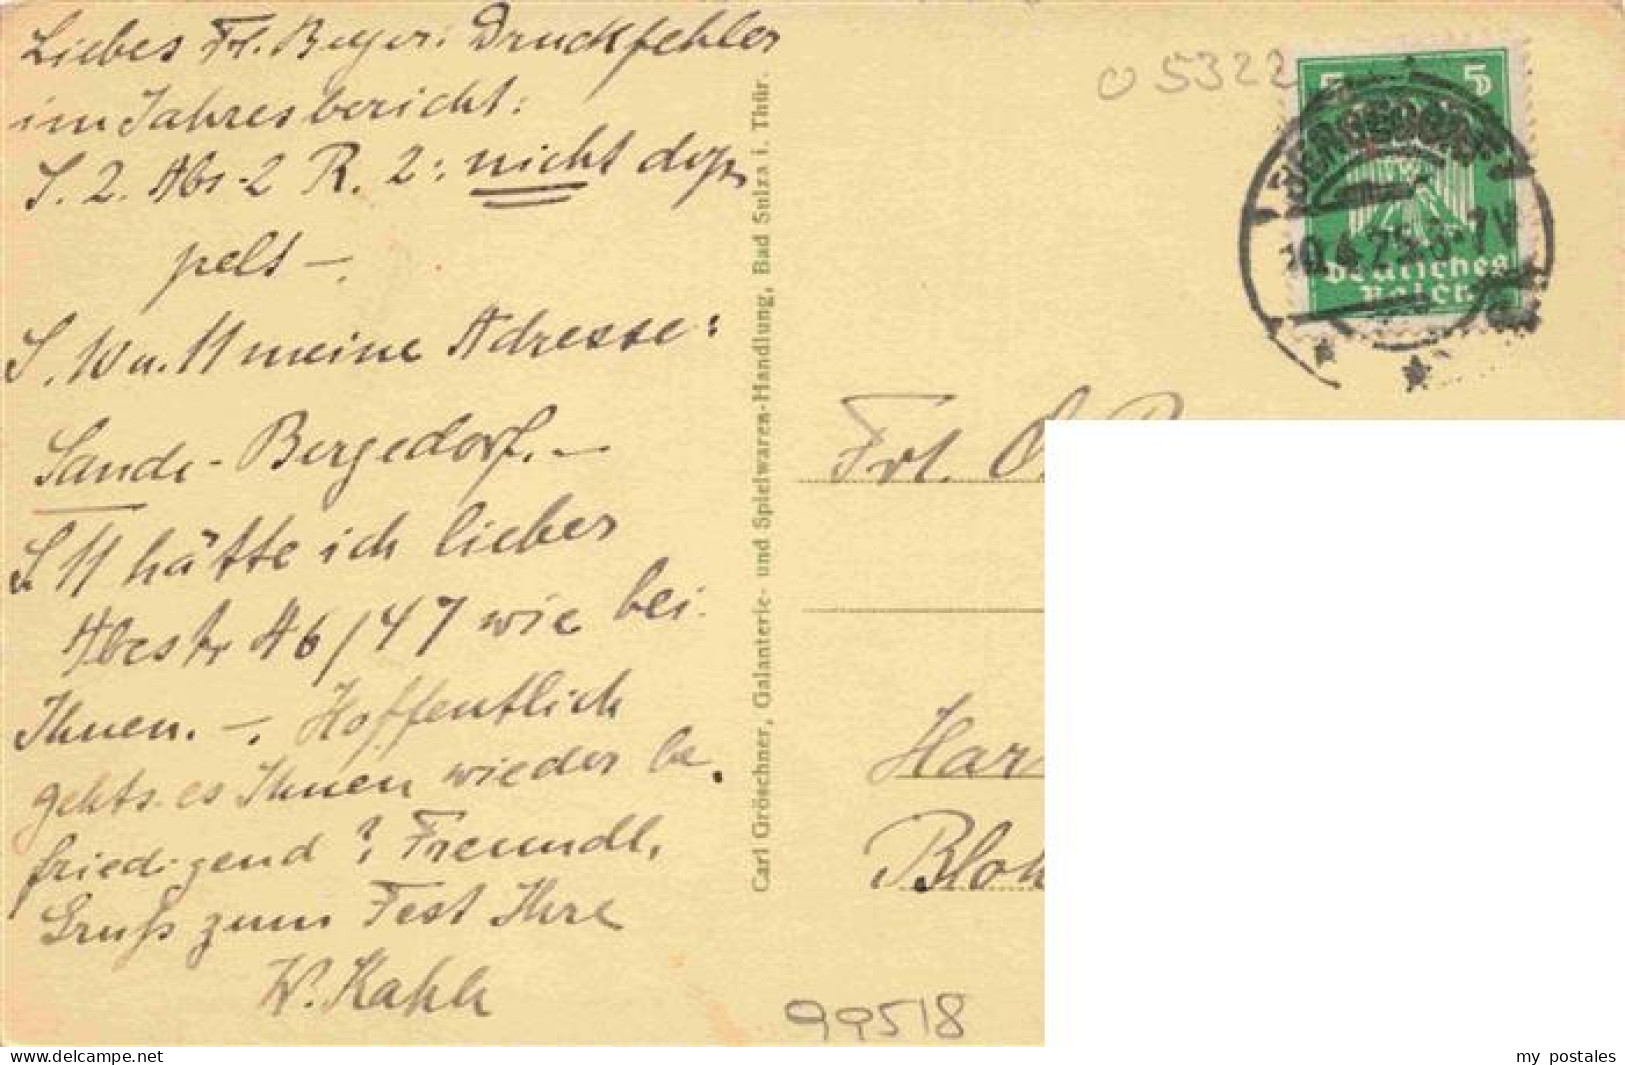 Liebes Frl. Beyer: Druckfehler
im Jahresbericht:
S. 2. Abs. 2 R. 2: nicht dop
pelt –.
S. 10 u. 11 meine Adresse:
Sande-Bergedorf. –
S 11 hätte ich lieber
46/47 wie bei
Ihnen. –. Hoffentlich
gehts es Ihnen wieder be
friedigend? Freundl.
Gruß zum Fest Ihre
W. Kahle
Carl Gröschner, Galanterie- und Spielwaren-Handlung, Bad Sulza i. Thür.
05322
5 5
BERGEDORF
10.4.25.
Deutsches
Reich
Frl.
Har
Bloh
99518
www.delcampe.net
my_postales